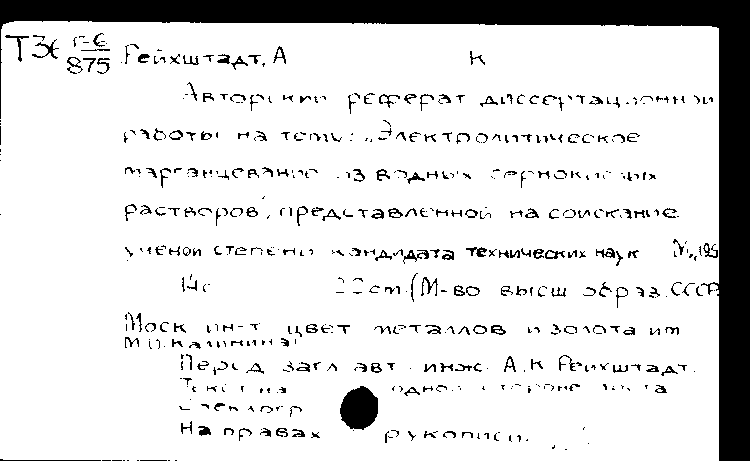 Т36 Г-6
875
Рейхштадт, А К
Авторский реферат диссертационной
работы на тему: „Электролитическое
марганцевание из водных сернокислых
растворов", представленной на соискание
ученой степени кандидата технических наук М., 195
14с 22 cm. (М-во высш образ. СССР
Моск ин-т цвет металлов и золота им
М.И. Калинина)
Перед загл авт инж. А.К Рейхштадт.
Текст на одной стороне листа
Стеклогр
На правах рукописи.